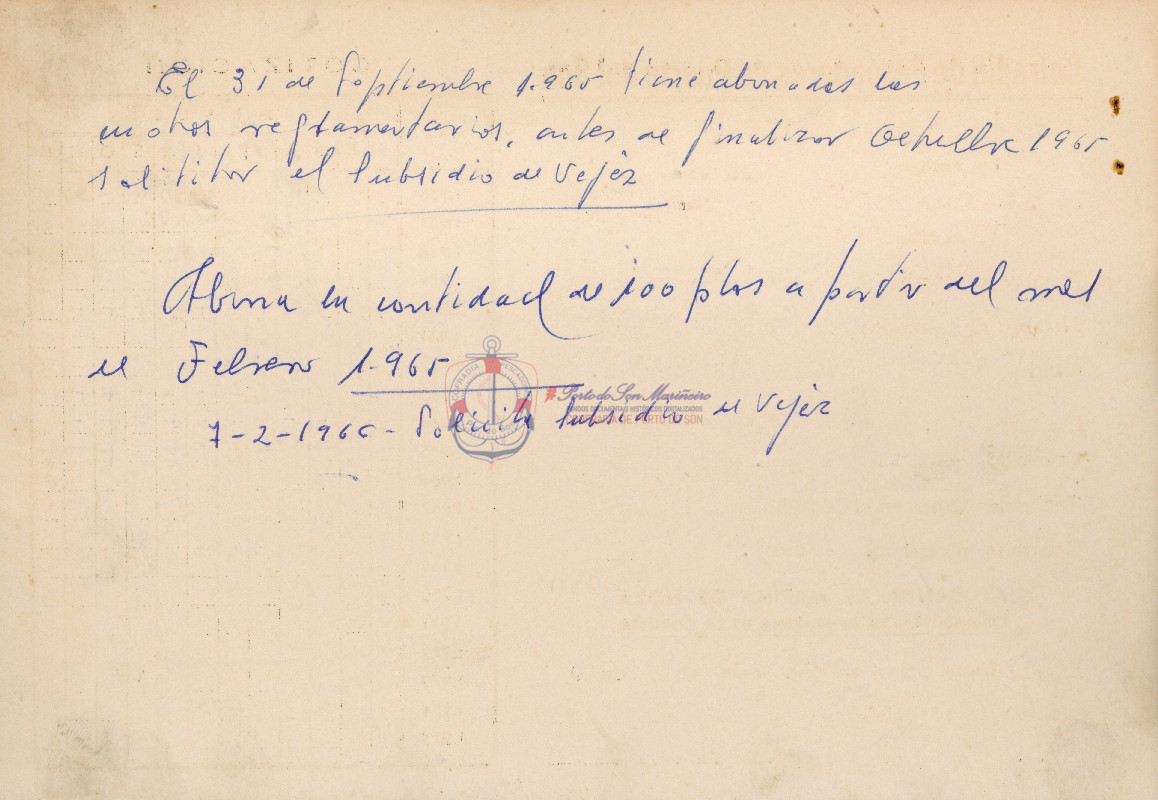 El 31 de Septiembre 1.965 tiene abonadas las
cuotas reglamentarias, antes de finalizar Octubre 1965
solicitar el Subsidio de Vejéz
Abona la cantidad de 100 ptas a partir del mes
de Febrero 1.965
COFRADIA PESCADORES
#PortodoSon Mariñeiro
FONDOS DOCUMENTAIS HISTÓRICOS DIXITALIZADOS
COFRADÍA DE PORTO DO SON
7-2-1966- Solicita Subsidio de Vejéz